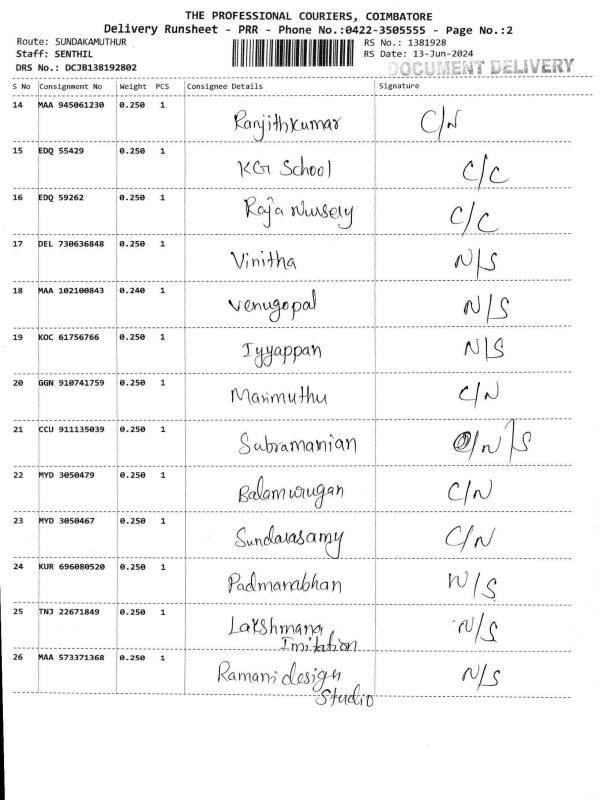 THE PROFESSIONAL COURIERS, COIMBATORE
Delivery Runsheet - PRR - Phone No.:0422-3505555 - Page No.:2
Route: SUNDAKAMUTHUR RS No.: 1381928
Staff: SENTHIL RS Date: 13-Jun-2024
DRS No.: DCJB138192802 DOCUMENT DELIVERY
S No Consignment No Weight PCS Consignee Details Signature
14 MAA 945061230 0.250 1 Ranjithkumar C/N
15 EDQ 55429 0.250 1 KG School C/C
16 EDQ 59262 0.250 1 Raja Nursery C/C
17 DEL 730636848 0.250 1 Vinitha N/S
18 MAA 102100843 0.240 1 Venugopal N/S
19 KOC 61756766 0.250 1 Iyyappan N/S
20 GGN 910741759 0.250 1 Marimuthu C/N
21 CCU 911135039 0.250 1 Subramanian /N/S
22 MYD 3050479 0.250 1 Balamurugan C/N
23 MYD 3050467 0.250 1 Sundarasamy C/N
24 KUR 696080520 0.250 1 Padmanabhan N/S
25 TNJ 22671849 0.250 1 Lakshmana N/S
Imitation
26 MAA 573371368 0.250 1 Ramani design N/S
Studio